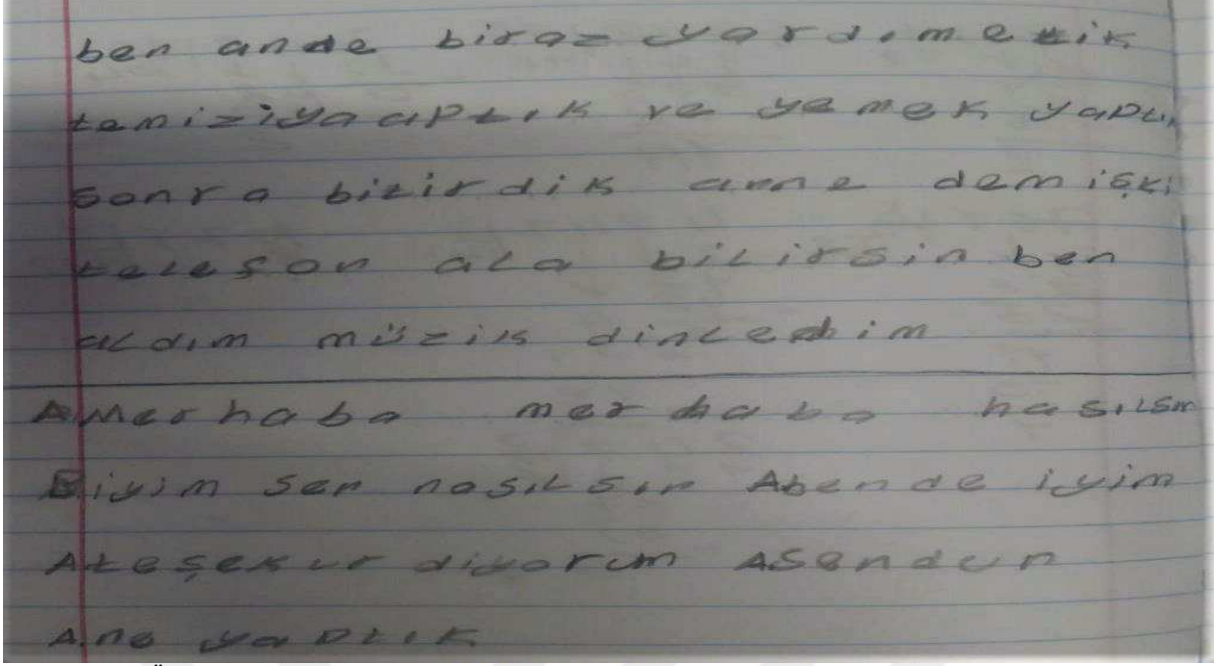 ben ande biraz yardımetik
temiziyaaptık ve yemek yaptı
sonra bitirdik anne demişki
telefon ala bilirsin ben
aldım müzik dinledim
AMerhaba merhaba hasılsın
Biyim sen nasılsın Abende iyim
Ateşekur diyorum ASendun
A.ne yaptık